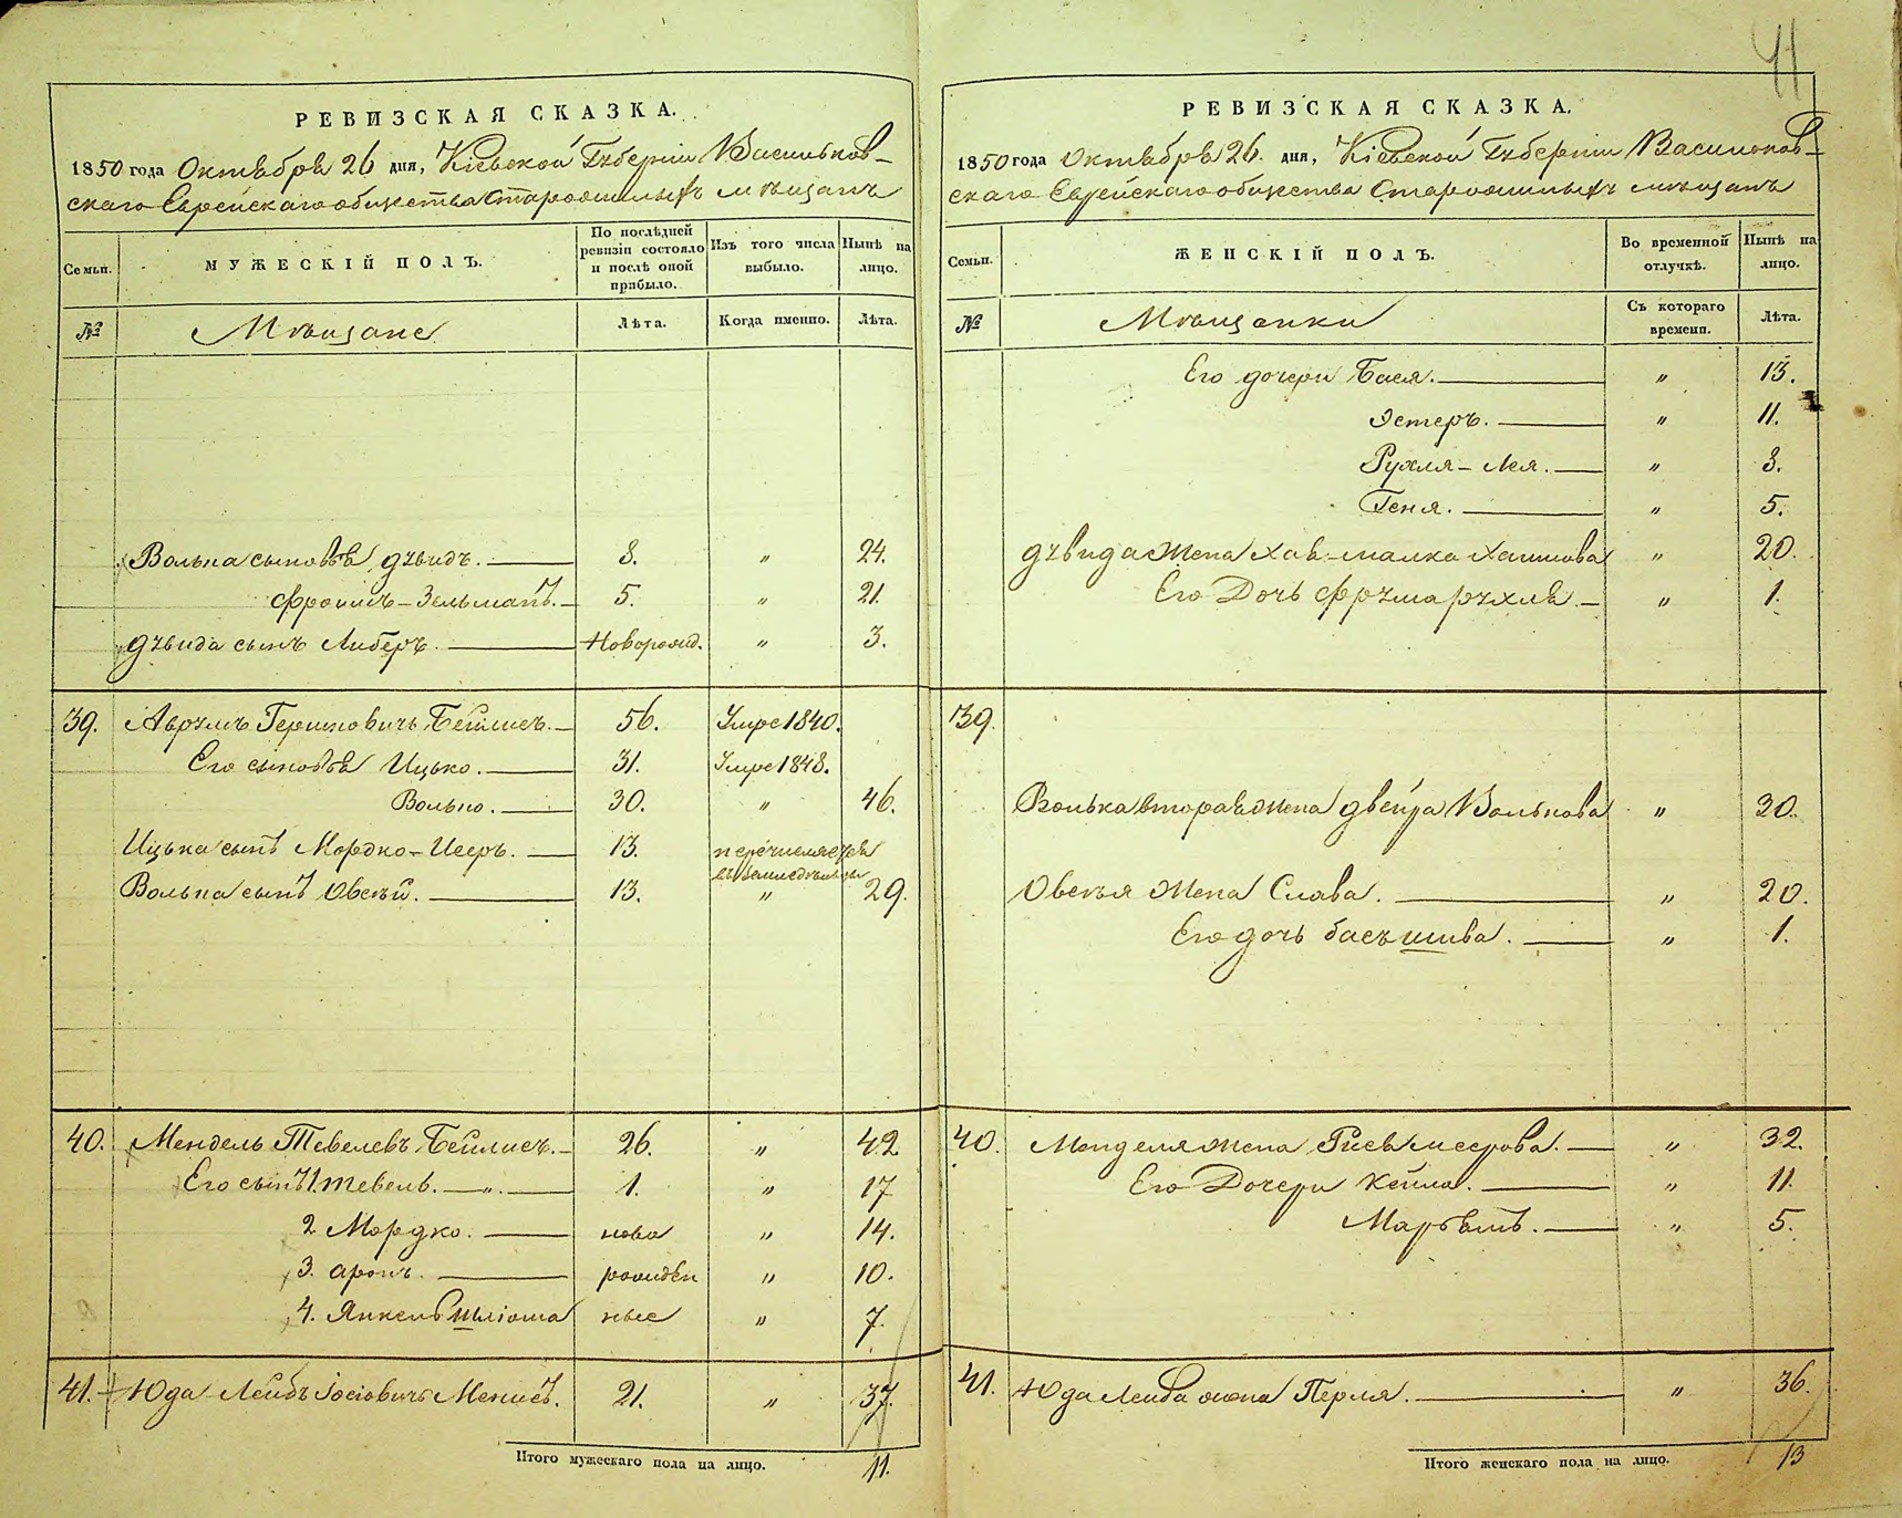 41
РЕВИЗСКАЯ СКАЗКА.
1850 года Октября 26 дня, Кіевской Губерніи Васильков-
скаго Еврейскаго общества Старожилыхъ мѣщанъ
Семьи. МУЖЕСКІЙ ПОЛЪ. По послѣдней ревизіи состояло и послѣ оной прибыло. Изъ того числа выбыло. Нынѣ на лицо.
№ Мѣщане Лѣта. Когда именно. Лѣта.
Волька сыновья Дувидъ. 8. " 24.
Фроимъ-Зельманъ. 5. " 21.
Дувида сынъ Либеръ. Новорожд. " 3.
39. Аврумъ Гершковичъ Бейлисъ. 56. Умре 1840.
Его сыновья Ицько. 31. Умре 1848.
Волько. 30. " 46.
Ицька сынъ Мордко-Исеръ. 13. перечисляется
въ земледѣльцы
Волька сынъ Овсѣй. 13. " 29.
40. Мендель Тевелевъ Бейлисъ. 26. " 42
Его сынъ 1. Тевель. " 1. " 17
2 Мордко. ново " 14.
3. Аронъ. рожден " 10.
4. Янкель Шліома ные " 7.
41. Юда Лейбъ Іосіовичъ 21. " 37.
Итого мужескаго пола на лицо. 11.
РЕВИЗСКАЯ СКАЗКА.
1850 года Октября 26. дня, Кіевской Губерніи Васильков-
скаго Еврейскаго общества Старожилыхъ мѣщанъ
Семьи. ЖЕНСКІЙ ПОЛЪ. Во временной отлучкѣ. Нынѣ на лицо.
№ Мѣщанки Съ котораго времени. Лѣта.
Его дочери Бася. " 13.
Эстеръ. " 11.
Рухля-Лея. " 8.
Геня. " 5.
Дувида жена Хая-малка Хаимова " 20.
Его Дочь Фрумарухля. " 1.
39.
Волька вторая жена Двейра Волькова " 30.
Овсѣя жена Слава. " 20.
Его дочь басъшива. " 1.
40. Менделя жена Рися меерова. " 32.
Его Дочери Кейла. " 11.
Марьямъ. " 5.
41. Юда Лейба жена Перля. " 36.
Итого женскаго пола на лицо. 13